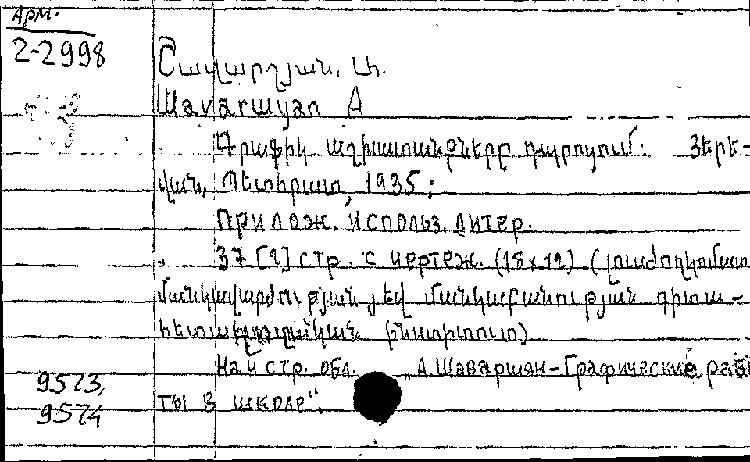 Арм.
2-2998
Շավարշյան, Ա.
Шаваршян А
Գրաֆիկ աշխատանքները դպրոցում. Յերե-
վան, Պետհրատ, 1935;
прилож. использ. литер.
37 [2] стр. с чертеж. (15x12) (Լուսժողկոմատ
Մանկավարժության յեվ մանկաբանության գիտա-
հետազոտական ինստիտուտ)
На стр. обл. „А. Шаваршян-Графические рабо
ты в школе“.
9573,
9574